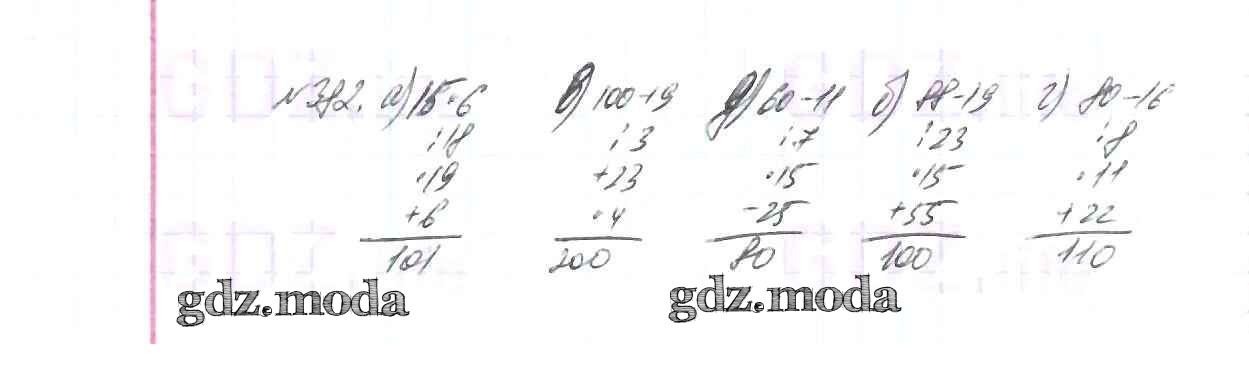 №382. а) 15·6 в) 100-19 д) 60-11 б) 88-19 г) 80-16
:18 :3 :7 :23 :8
·19 +23 ·15 ·15 ·11
+6 ·4 -25 +55 +22
101 200 80 100 110
gdz.moda gdz.moda